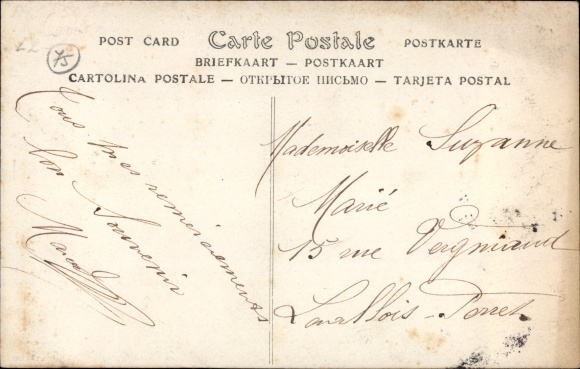 POST CARD Carte Postale POSTKARTE
BRIEFKAART — POSTKAART
CARTOLINA POSTALE — ОТКРЫТОЕ ПИСЬМО — TARJETA POSTAL
Tous mes remerciements
bon Souvenir
Mademoiselle Suzanne
Marié
15 rue Vergniaud
Levallois-Perret